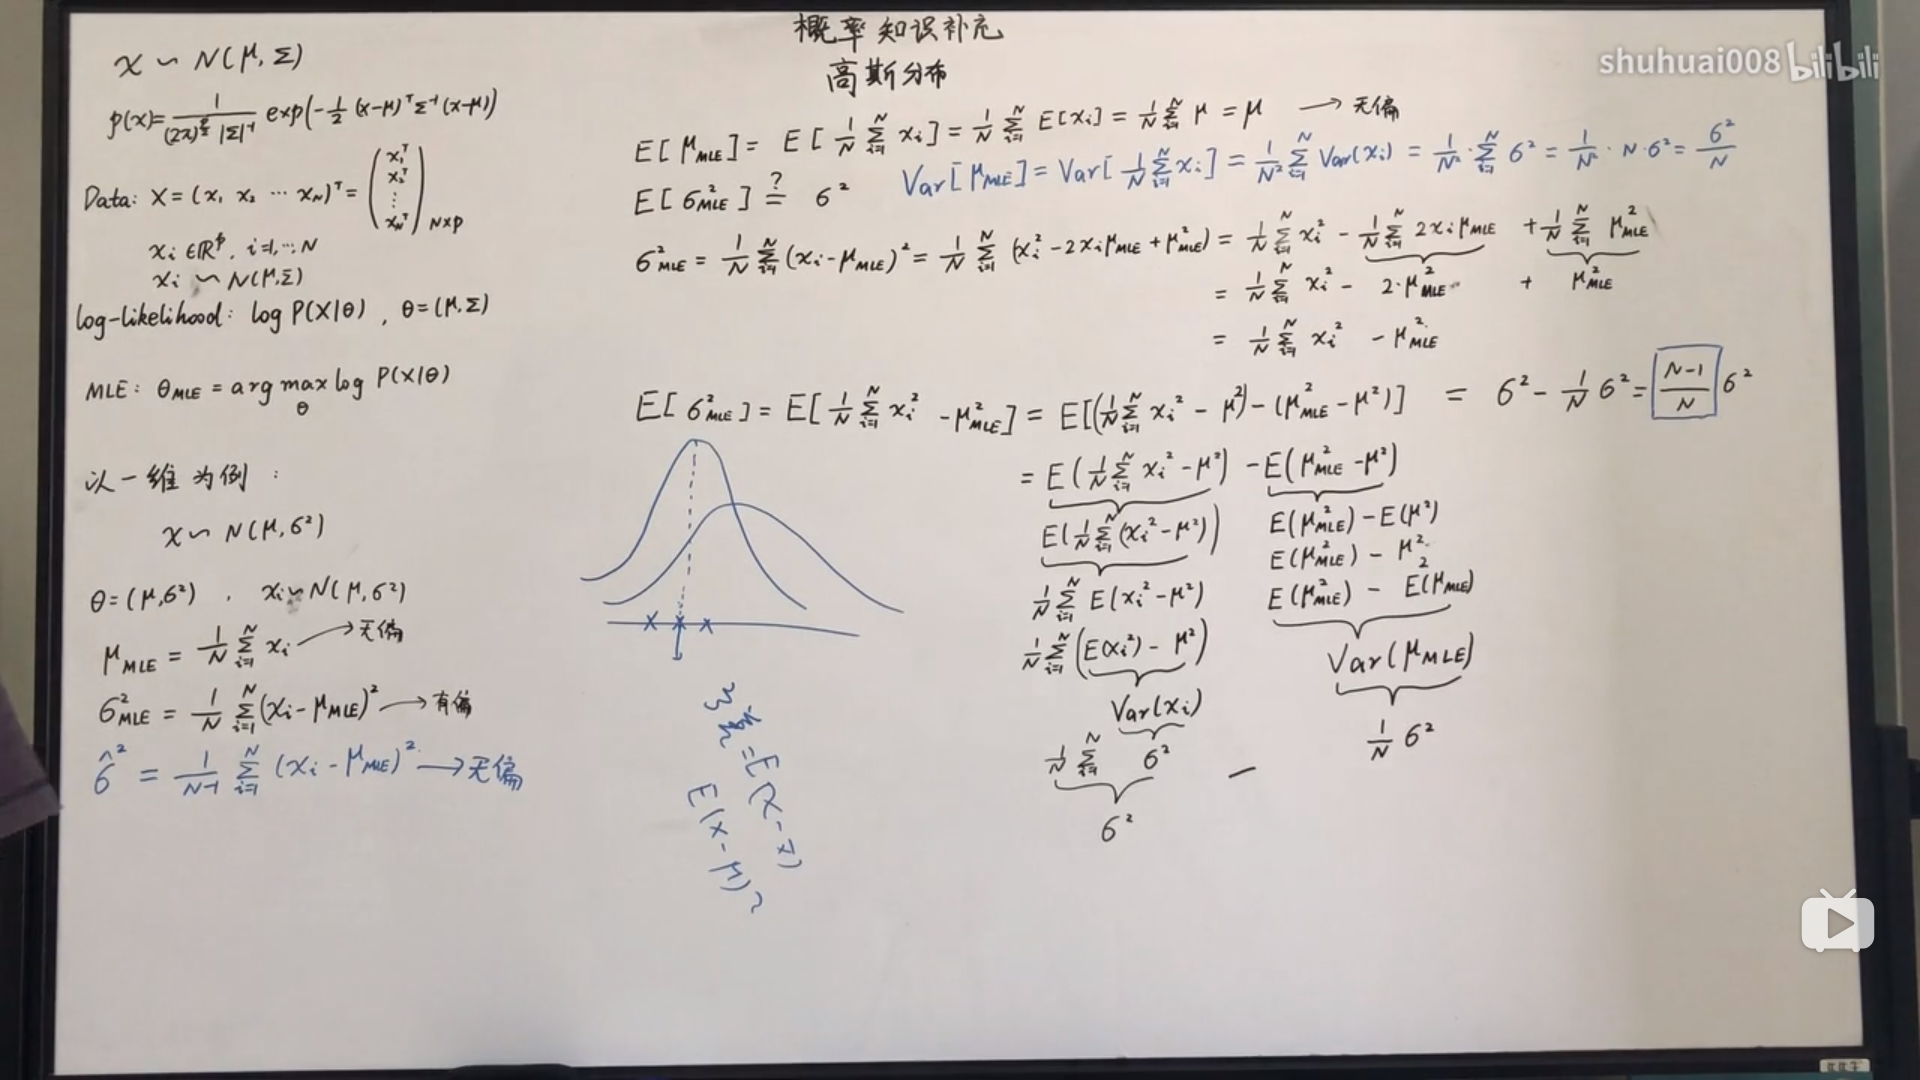 概率知识补充
高斯分布
shuhuai008 bilibili
x ~ N(μ, Σ)
p(x)= 1/((2π)^{p/2} |Σ|^{-1}) exp(-1/2 (x-μ)ᵀ Σ⁻¹ (x-μ))
Data: X = (x₁ x₂ ⋯ x_N)ᵀ = (x₁ᵀ x₂ᵀ ⋮ x_Nᵀ) N×p
xᵢ ∈ ℝᵖ, i=1,⋯N
xᵢ ~ N(μ,Σ)
log-likelihood: log P(X|θ) , θ=(μ,Σ)
MLE: θ_MLE = arg max_θ log P(X|θ)
以一维为例 :
x ~ N(μ, σ²)
θ=(μ,σ²) , xᵢ ~ N(μ, σ²)
μ_MLE = 1/N Σ_{i=1}^N xᵢ → 无偏
σ²_MLE = 1/N Σ_{i=1}^N (xᵢ - μ_MLE)² → 有偏
σ̂² = 1/(N-1) Σ_{i=1}^N (xᵢ - μ_MLE)² → 无偏
E[μ_MLE] = E[1/N Σ_{i=1}^N xᵢ] = 1/N Σ_{i=1}^N E[xᵢ] = 1/N Σ_{i=1}^N μ = μ → 无偏
Var[μ_MLE] = Var[1/N Σ_{i=1}^N xᵢ] = 1/N² Σ_{i=1}^N Var(xᵢ) = 1/N² · Σ_{i=1}^N σ² = 1/N² · N·σ² = σ²/N
E[σ²_MLE] ?= σ²
σ²_MLE = 1/N Σ_{i=1}^N (xᵢ - μ_MLE)² = 1/N Σ_{i=1}^N (xᵢ² - 2xᵢμ_MLE + μ²_MLE) = 1/N Σ_{i=1}^N xᵢ² - 1/N Σ_{i=1}^N 2xᵢμ_MLE + 1/N Σ_{i=1}^N μ²_MLE
= 1/N Σ_{i=1}^N xᵢ² - 2·μ²_MLE + μ²_MLE
= 1/N Σ_{i=1}^N xᵢ² - μ²_MLE
E[σ²_MLE] = E[1/N Σ_{i=1}^N xᵢ² - μ²_MLE] = E[(1/N Σ_{i=1}^N xᵢ² - μ²) - (μ²_MLE - μ²)] = σ² - 1/N σ² = (N-1)/N σ²
= E(1/N Σ_{i=1}^N xᵢ² - μ²) - E(μ²_MLE - μ²)
E(1/N Σ_{i=1}^N (xᵢ² - μ²))
1/N Σ_{i=1}^N E(xᵢ² - μ²)
1/N Σ_{i=1}^N (E(xᵢ²) - μ²)
Var(xᵢ)
1/N Σ_{i=1}^N σ²
σ²
E(μ²_MLE) - E(μ²)
E(μ²_MLE) - μ²
E(μ²_MLE) - E²(μ_MLE)
Var(μ_MLE)
1/N σ²
-
= E(x-x̄)
E(x-μ)²